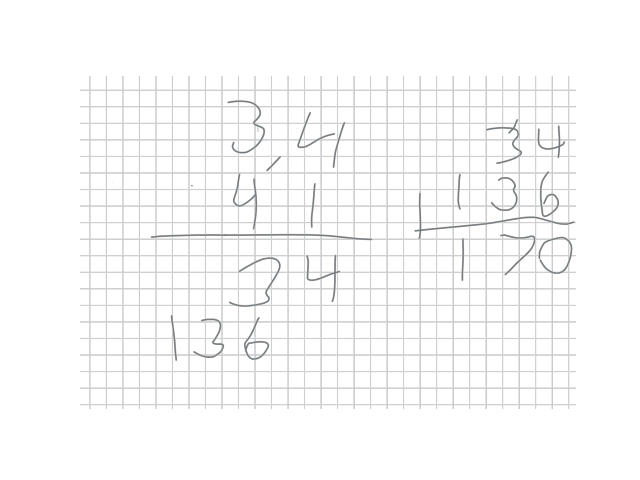 3,4
41
34
136
34
1136
170